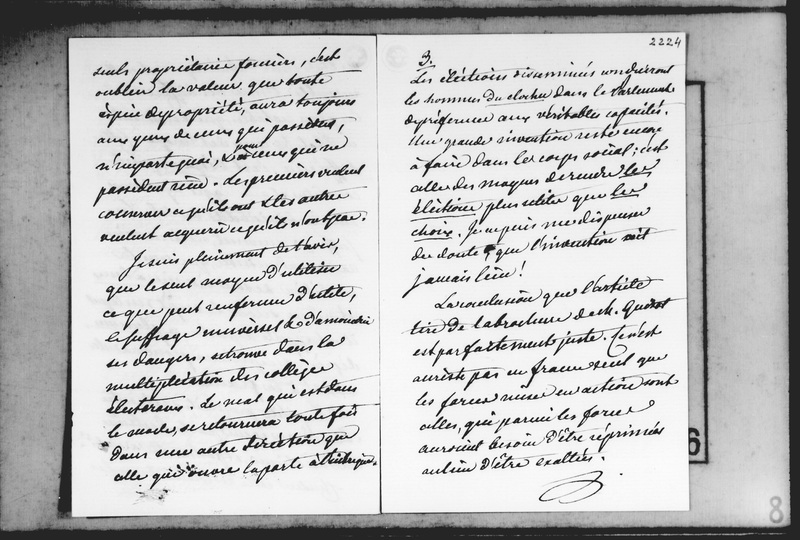 seuls propriétaire fonciers, c'est
oublier la valeur que toute
espèce de propriété, aura toujours
aux yeux de ceux qui possèdent,
n'importe quoi, & pour ceux qui ne
possèdent rien. Les premiers veulent
conserver ce qu'ils ont & les autres
veulent acquerir ce qu'ils n'ont pas.
Je suis pleinement de l'avis,
que le seul moyen d'utiliser
ce que peut renfermer d'utile,
le suffrage universel & d'amoindrir
ses dangers, se trouve dans la
multiplication des collèges
électoraux. Le mal qui est dans
le mode, se retournera toute fois
dans une autre direction que
celle qui ouvre la porte à l'intrigue.
2224
3.
Les éléctions disseminées
les hommes du clocher dans le Parlement
de préférence aux véritables capacités.
Une grande invention reste encore
à faire dans le corps social; c'est
celle des moyens de rendre les
éléctions plus utiles que les
choix. Je ne puis me dispenser
du doute que l'invention soit
jamais lieu!
La conclusion que l'article
tire de la brochure de M. Guizot
est parfaitement juste. Ce n'est
pas en france seul que
les forces mises en action sont
celles, qui parmi les forces
auroient besoin d'être réprimées
au lieu d'être exaltées.
6
8